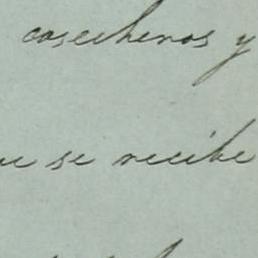 cosecheros y
ue se recibe